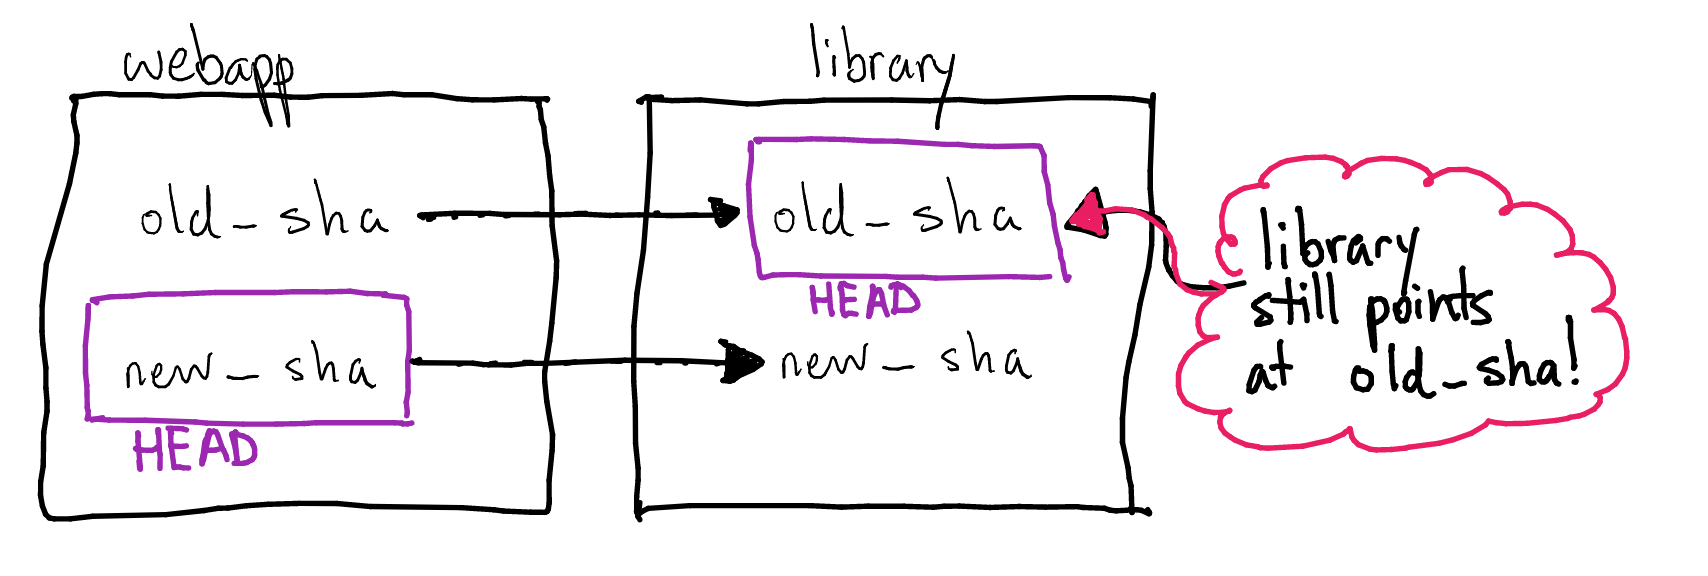 webapp
old_sha
new_sha
HEAD
library
old_sha
HEAD
new_sha
library
still points
at old_sha!